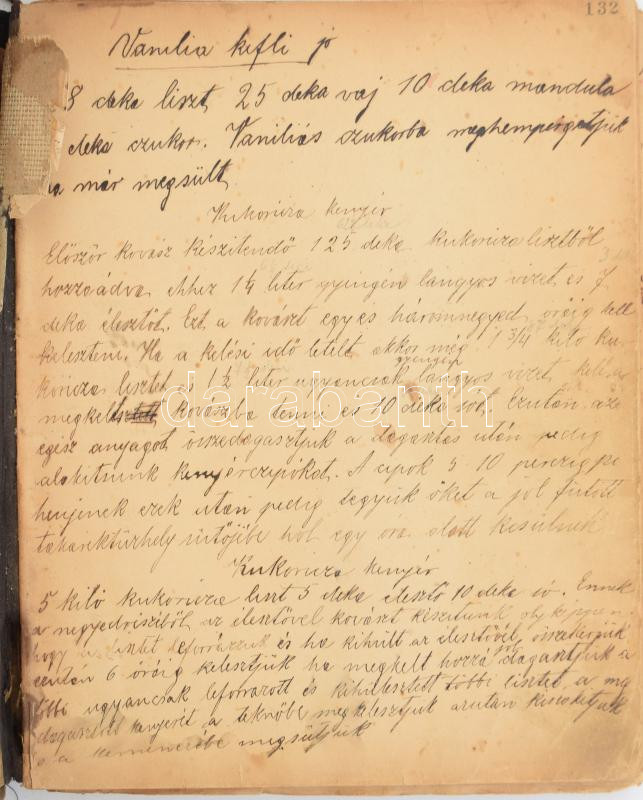 132
Vanilia kifli jó
8 deka liszt, 25 deka vaj 10 deka mandula
deka czukor. Vaniliás czukorba meghempergetjük
ha már megsült
Kukoricza kenyér
Először kovász készitendő 125 deka kukoricza lisztből
hozzáadva ehhez 1¼ liter gyengén langyos vizet és 7
deka élesztőt. Ezt a kovászt egy és háromnegyed óráig kell
keleszteni. Ha a kelési idő letelt akkor még 1 3/4 kiló ku-
koricza lisztet és 1½ liter ugyancsak gyengén langyos vizet
megkelt kovászba tenni és 10 deka sót, Ezután az
egész anyagot összedagasztjuk a dagasztás után pedig
alakitunk kenyérczipókat. A cipok 5-10 perczig pi-
henjenek ezek után pedig tegyük őket a jól fütött
takaréktüzhely sütőjébe hol egy ora alatt kisülnek
darabanth
Kukoricza kenyér
5 kiló kukoricza liszt 5 deka élesztő 10 deka só. Ennek
a negyedrészből az élesztővel kovászt készitünk oly képpen
hogy a lisztet leforrázzuk és ha kihült az élesztővel összekeverjük
ezután 6 óráig kelesztjük ha megkelt hozzá dagasztjuk a
többi ugyancsak leforrázott és kihülesztett többi lisztet a meg
dagasztott kenyeret a teknőbe megkelesztjük azután kiszakitjuk
s a kemenczébe megsütjük